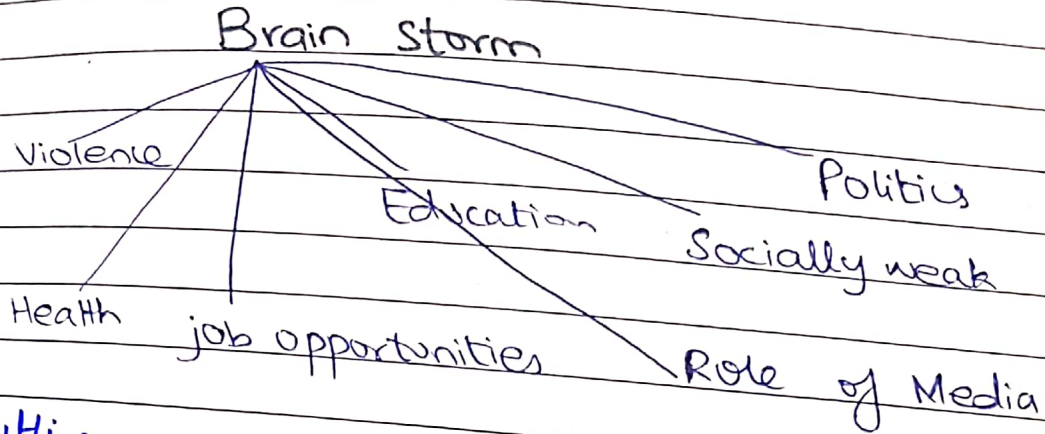 Brain Storm
Violence
Politics
Education
Socially weak
Health
job opportunities
Role of Media